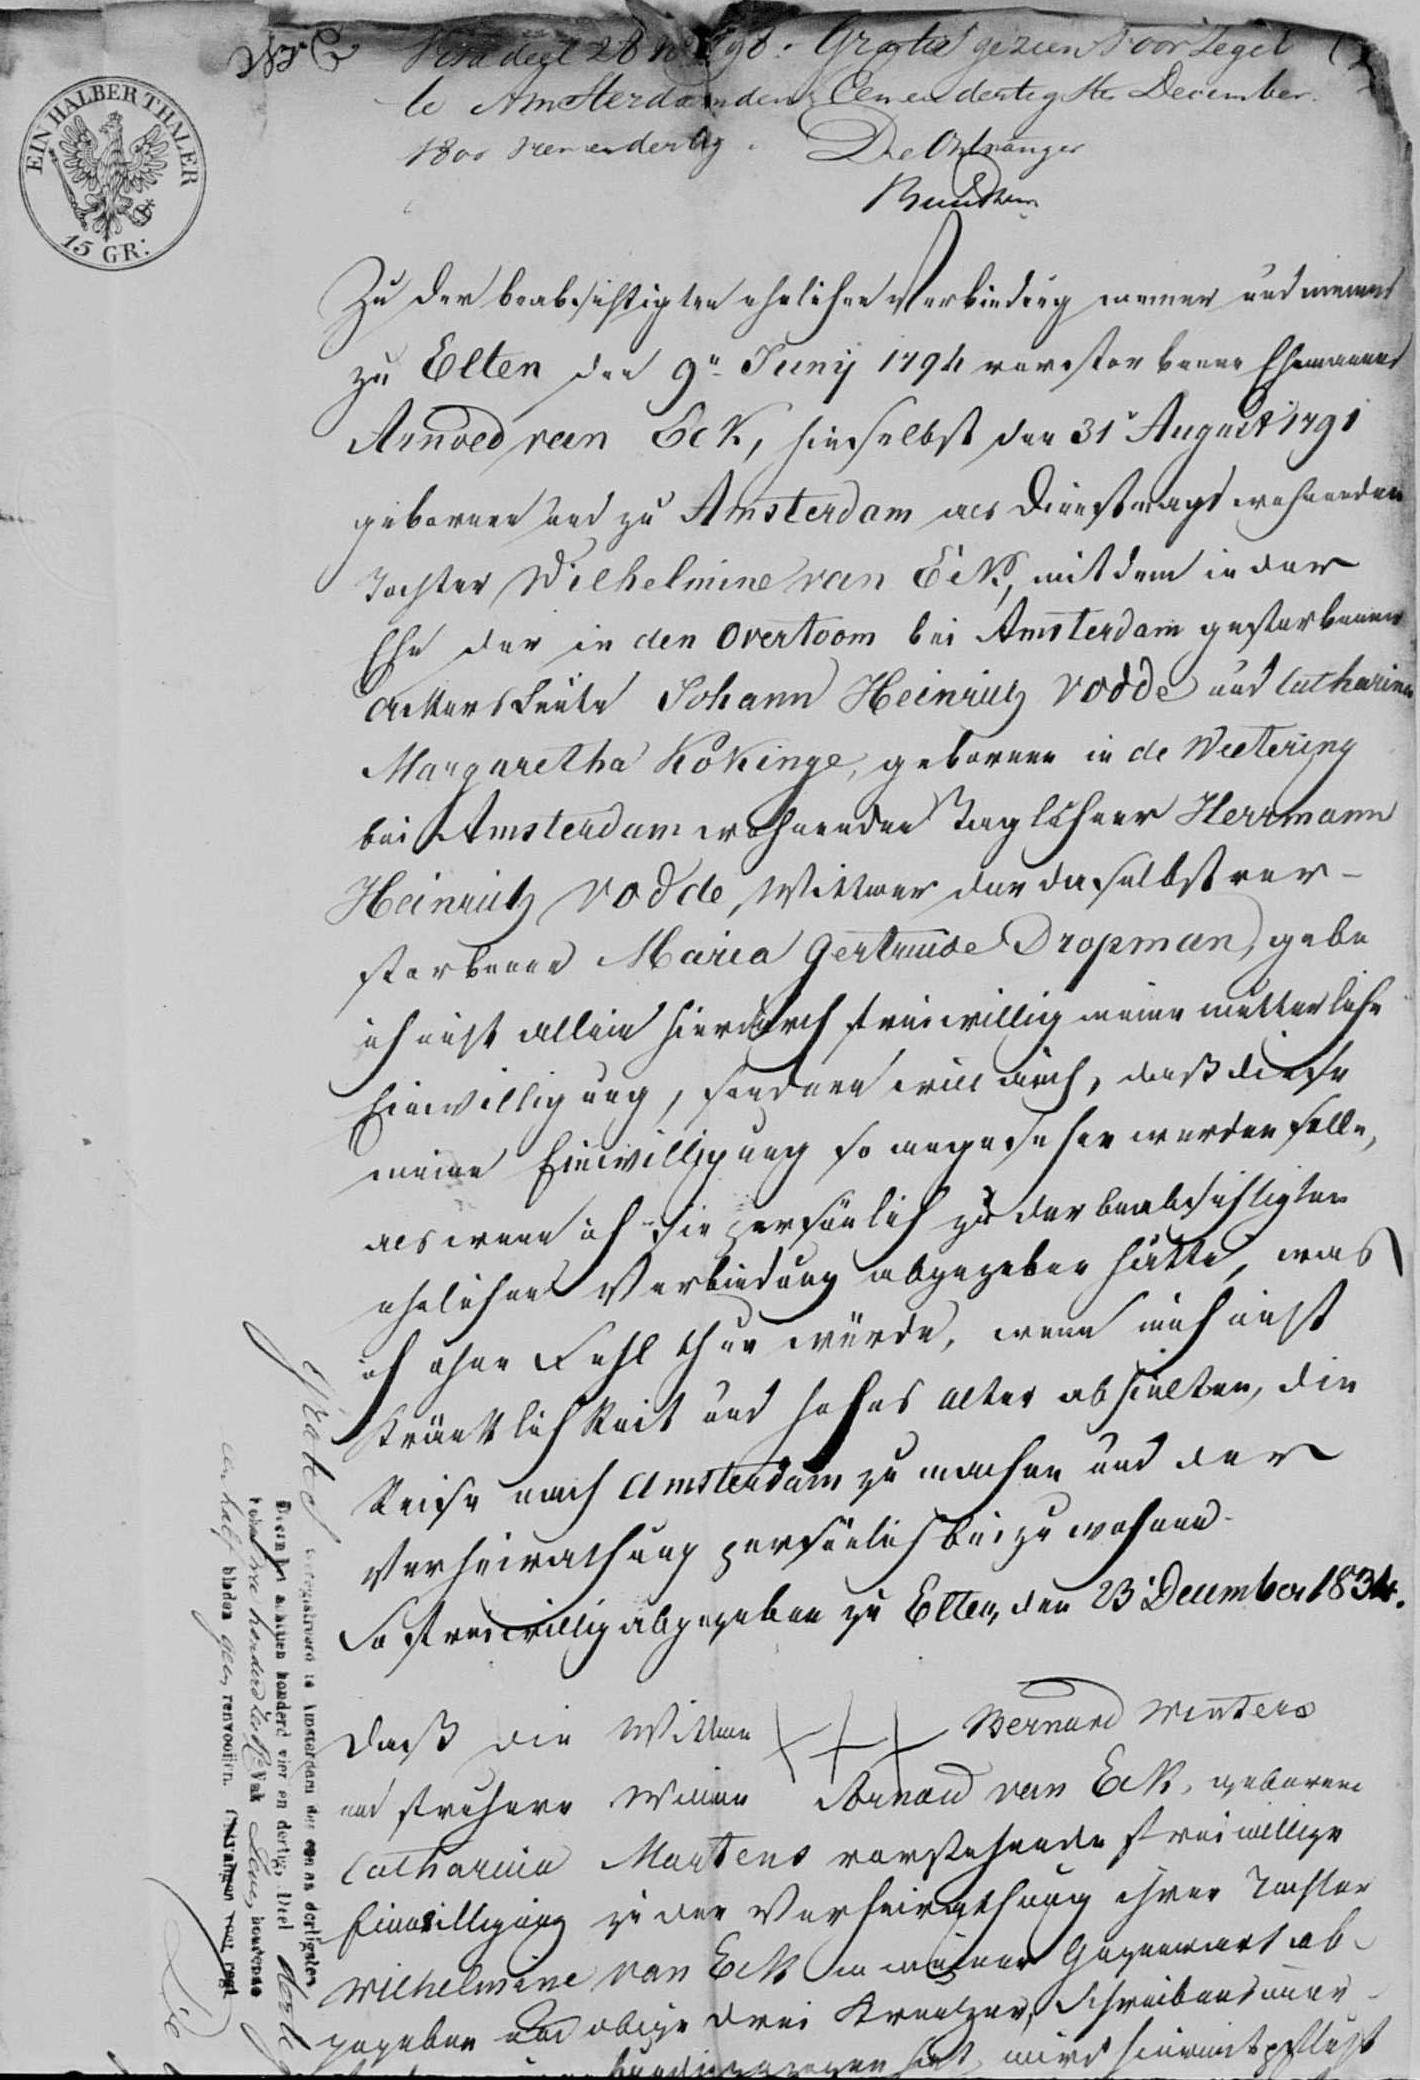 EIN HALBER THALER
15 GR:
Gratis gezien voor zegel
te Amsterdam den Een en dertigsten December
1800 vier en dertig.
De Ontvanger
Zu der beabsichtigten ehelichen Verbindung meiner und meines
zu Elten den 9n Juny 1794 verstorbenen Ehemannes
Arnold van Eck, hierselbst den 31n August 1791
gebornen und zu Amsterdam als Dienstmagd wohnenden
Tochter Wilhelmine van Eck, mit dem in der
Ehe der in den Overtoom bei Amsterdam gestorbenen
Ackersleute Johann Heinrich Vodde und Catharina
Margaretha Kökinge, gebornen in de Weetering
bei Amsterdam wohnenden Taglöhner Herrmann
Heinrich Vodde, Wittwer der daselbst ver-
storbenen Maria Gertruide Dropman, gebe
ich nicht allein hierdurch freiwillig meine mütterliche
Einwilligung, sondern will auch, daß diese
meine Einwilligung so angesehen werden solle,
als wenn ich sie persönlich zu der beabsichtigten
ehelichen Verbindung abgegeben hätte, was
ich ohne Fehl thun würde, wenn mich nicht
Kränklichkeit und hohes Alter abhielten, die
Reise nach Amsterdam zu machen und der
Verheirathung persönlich beizuwohnen.
So freiwillig abgegeben zu Elten, den 23n December 1834.
Daß die Wittwe +++ Bernard Winters
und frühere Wittwe Arnold van Eck, geborene
Catharina Martens vorstehende freiwillige
Einwilligung zu der Verheirathung ihrer Tochter
Wilhelmine van Eck in meiner Gegenwart ab-
gegeben und obige drei Kreutzer, Schreibensuner-
hat, wird hiermit pflicht
Geregistreerd te Amsterdam den een en dertigsten
December achttien honderd vier en dertig, Deel
honderd Vak
een half bladen geen renvooijen. Ontvangen voor regt